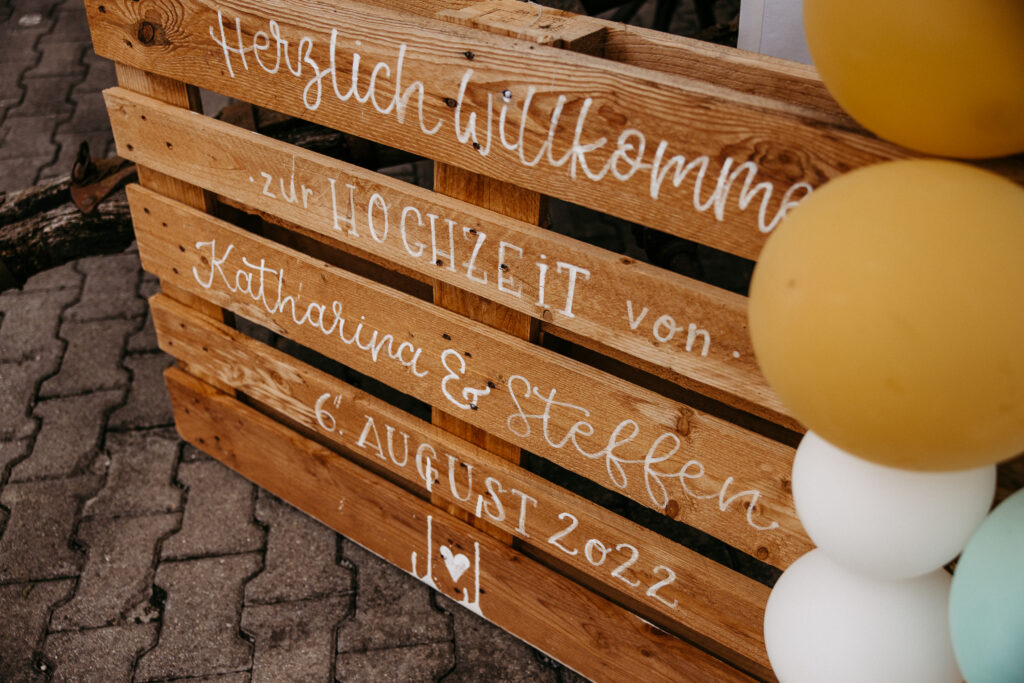 Herzlich Willkomme
· zur HOCHZEiT von ·
Katharina & Steffen
6. AUGUST 2022